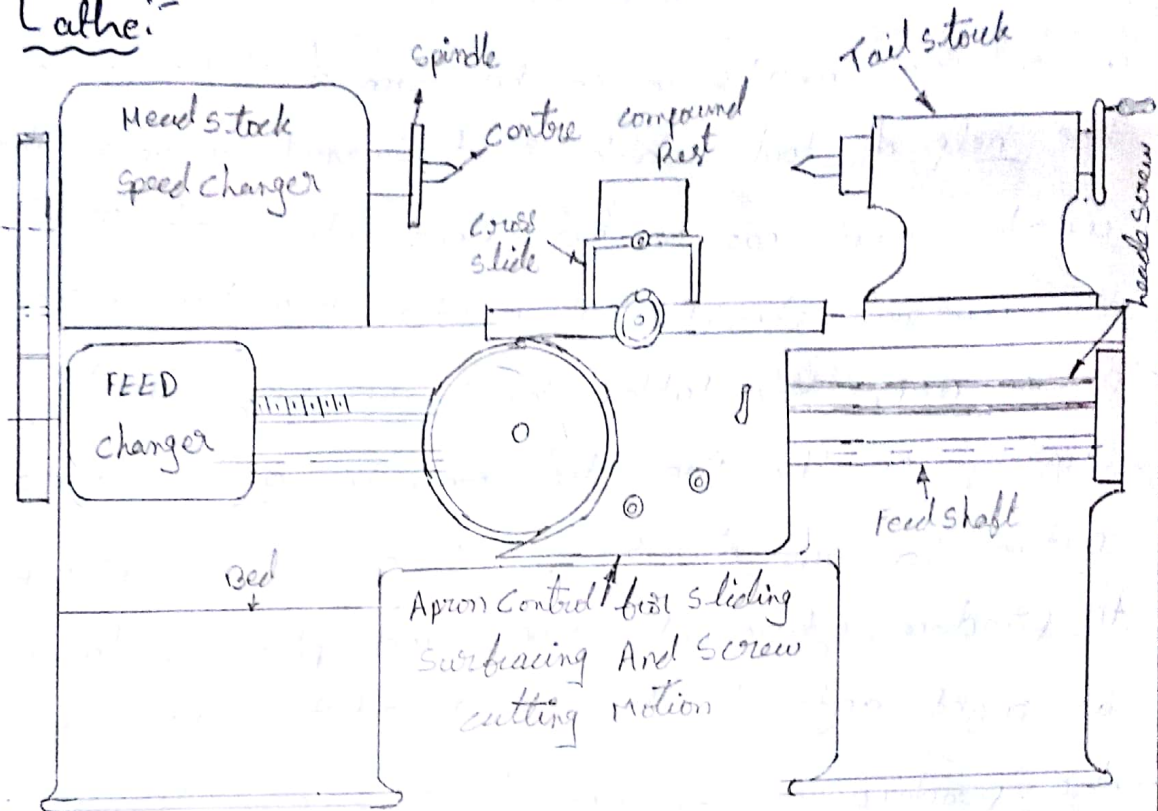 Lathe:-
Spindle
Tail stock
Head stock
Speed changer
centre
compound
Rest
Cross
slide
heads screw
FEED
changer
Feed shaft
Bed
Apron Control for sliding
Surfacing And Screw
cutting Motion